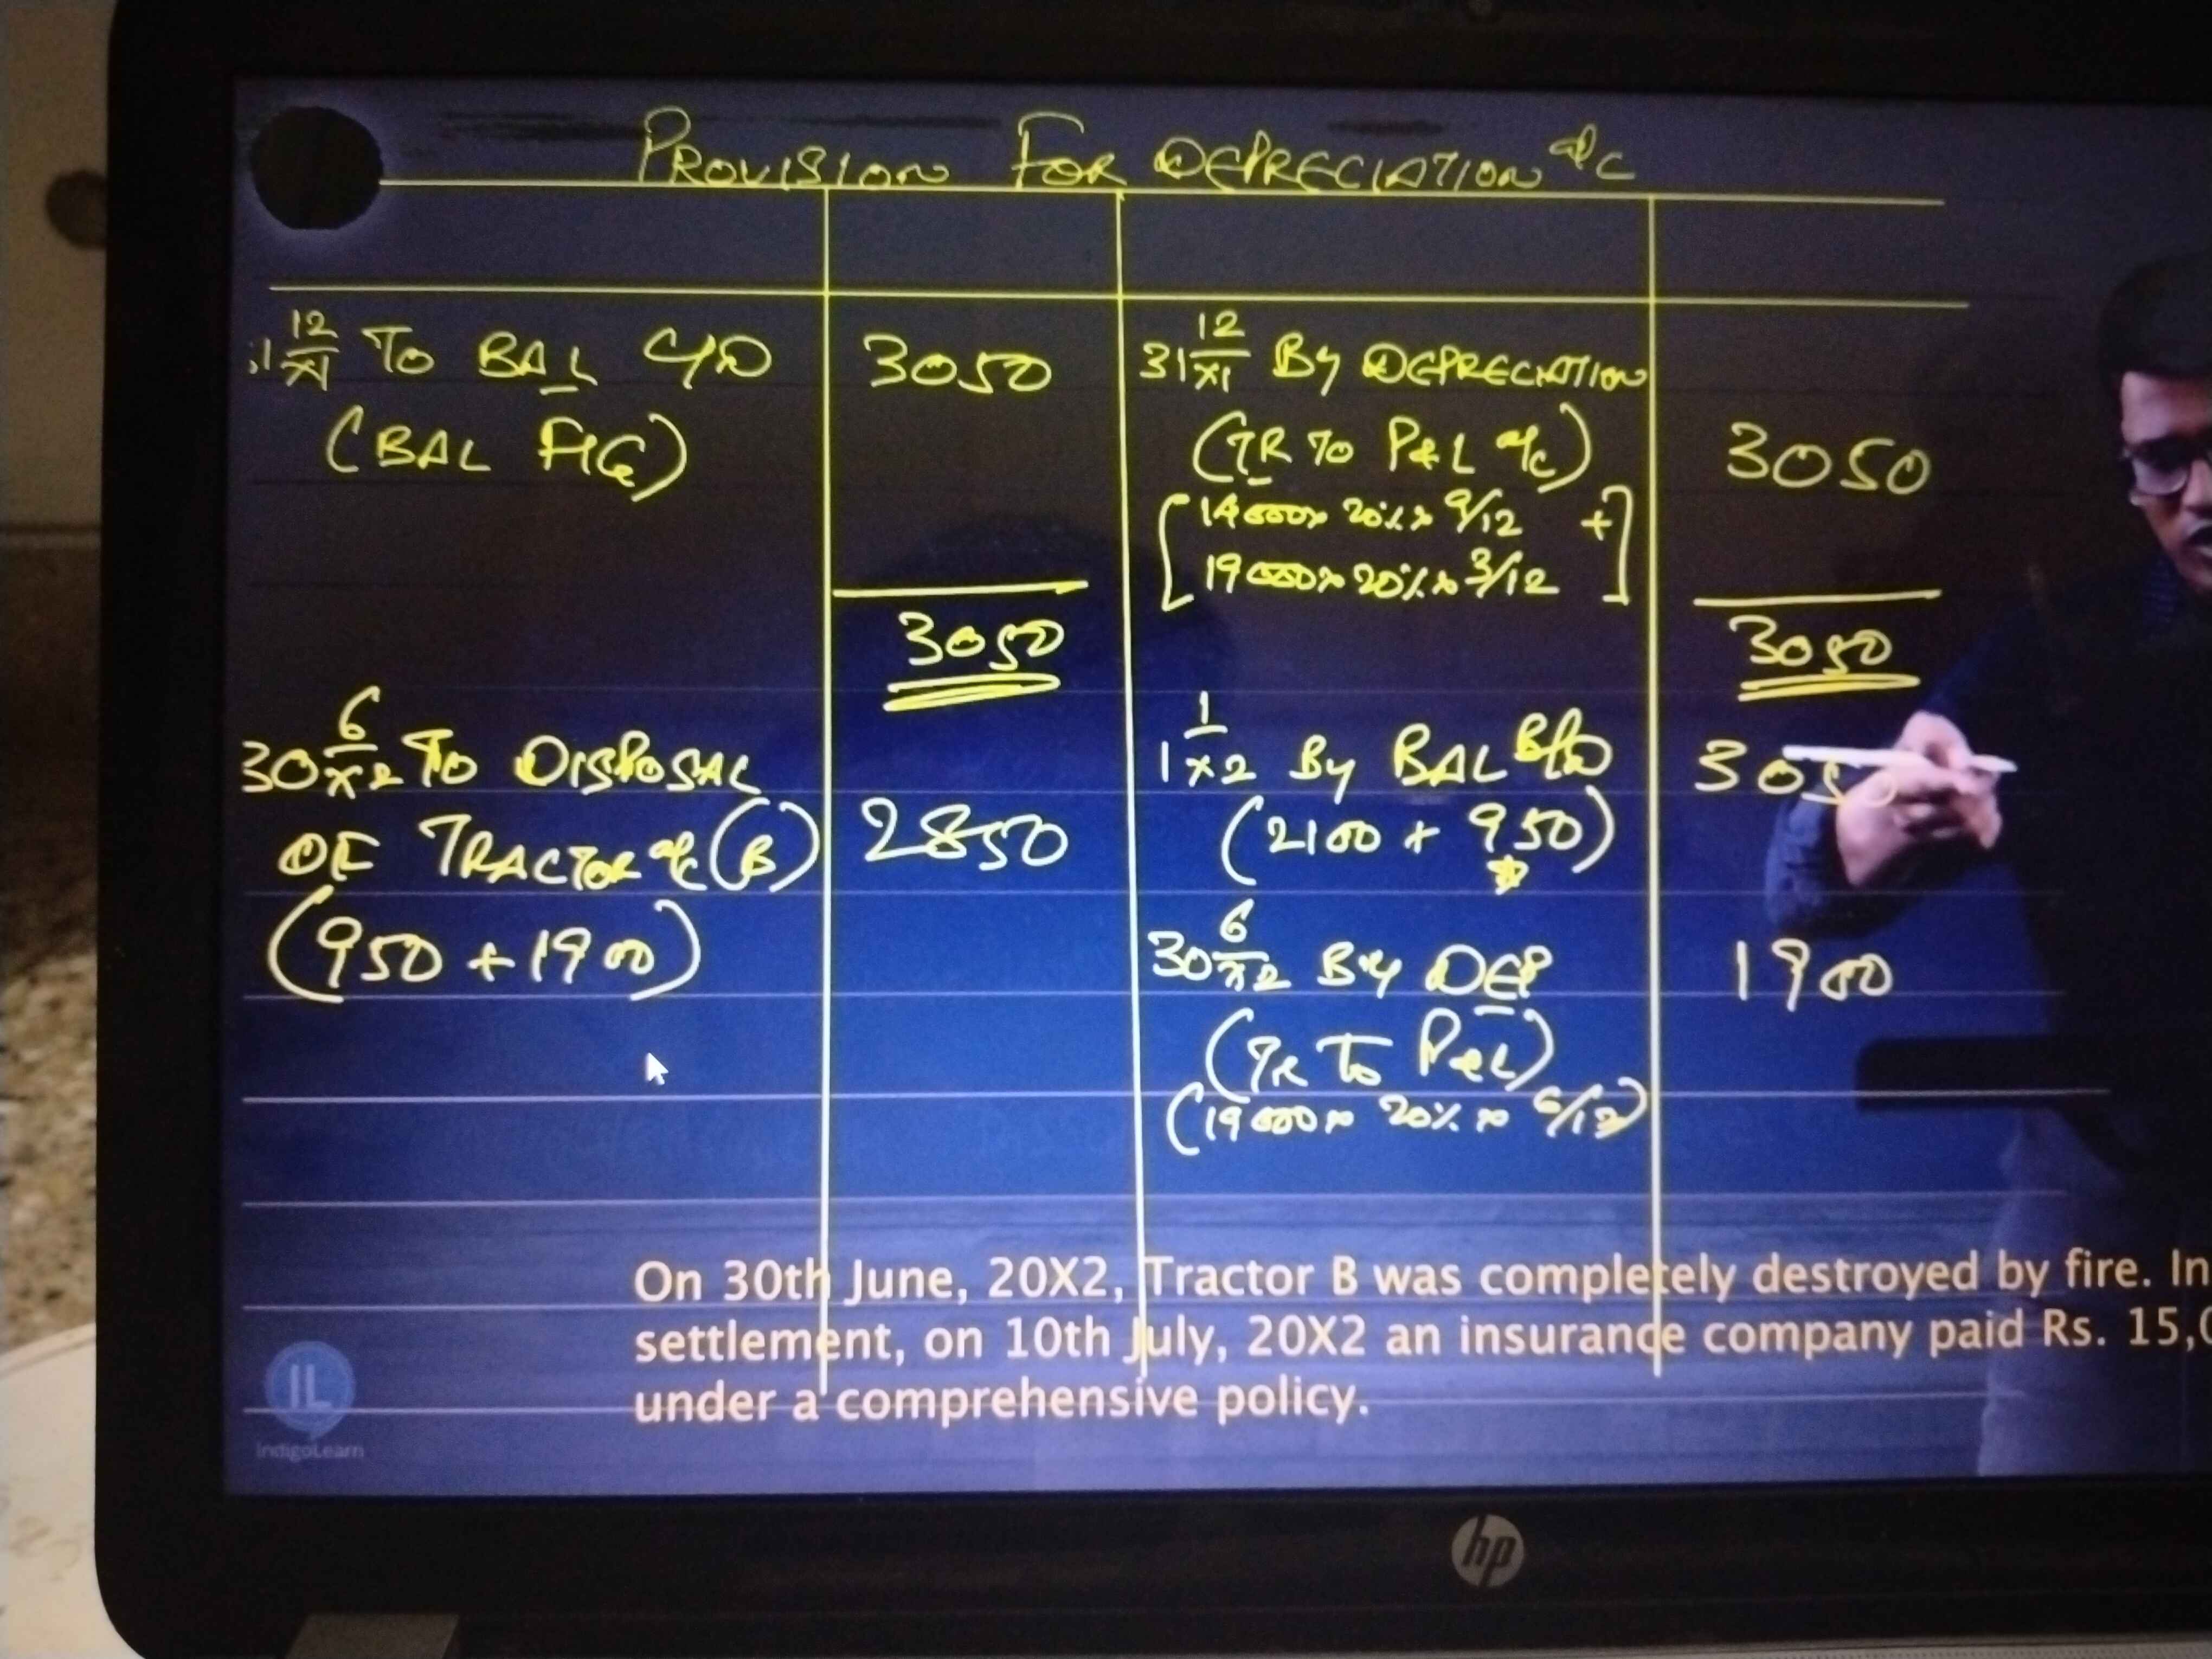 PROVISION FOR DEPRECIATION a/c
31 12/X1 To BAL C/D 3050
(BAL FIG)
3050
30 6/X2 To DISPOSAL
OF TRACTOR a/c (B) 2850
(950 + 1900)
31 12/X1 By DEPRECIATION
(TR TO P&L a/c) 3050
[14000 x 20% x 9/12 +
19000 x 20% x 3/12]
3050
1 1/X2 By BAL B/D
(2100 + 950)
30 6/X2 By DEP 1900
(TR To P&L)
(19000 x 20% x 6/12)
On 30th June, 20X2, Tractor B was completely destroyed by fire. In
settlement, on 10th July, 20X2 an insurance company paid Rs. 15,0
under a comprehensive policy.
IL
IndigoLearn
hp